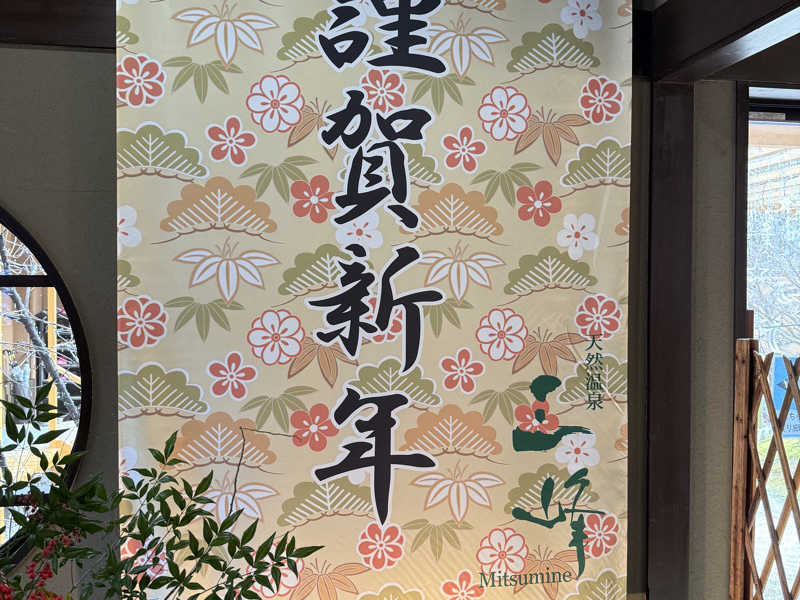 謹賀新年
天然温泉
三峰
Mitsumine